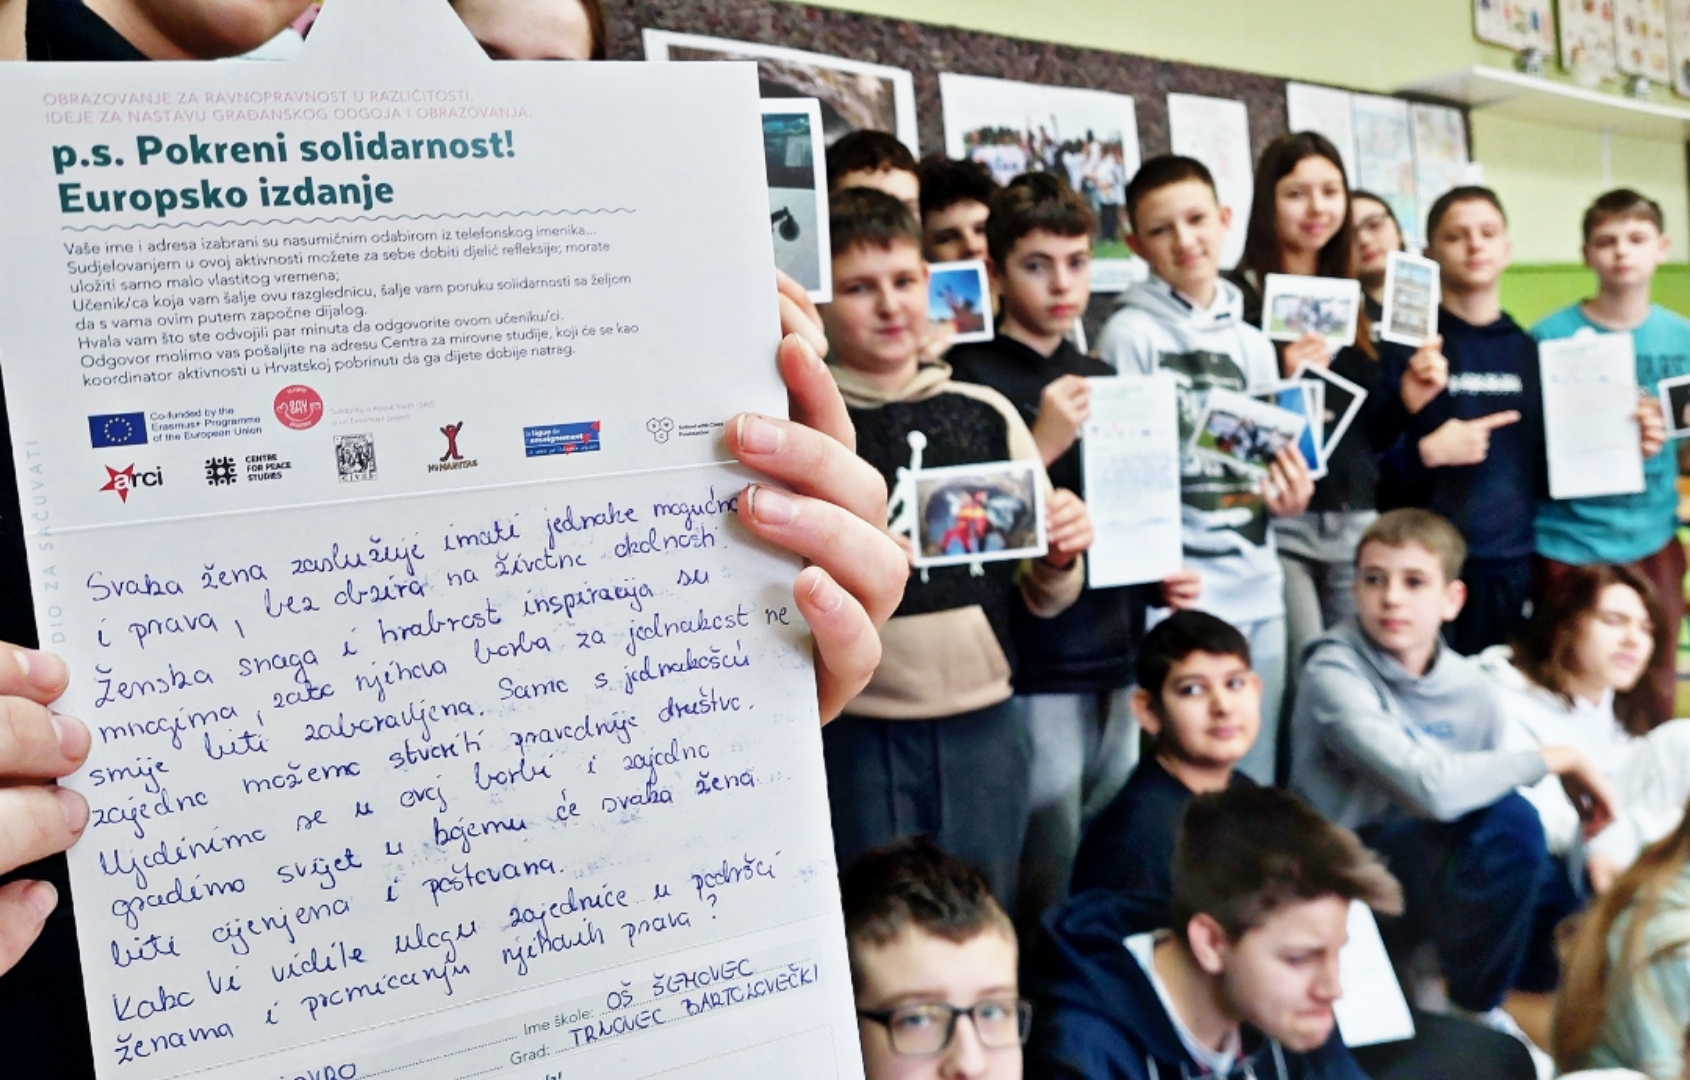 OBRAZOVANJE ZA RAVNOPRAVNOST U RAZLIČITOSTI,
IDEJE ZA NASTAVU GRAĐANSKOG ODGOJA I OBRAZOVANJA
p.s. Pokreni solidarnost!
Europsko izdanje
Vaše ime i adresa izabrani su nasumičnim odabirom iz telefonskog imenika...
Sudjelovanjem u ovoj aktivnosti možete za sebe dobiti djelić refleksije; morate
uložiti samo malo vlastitog vremena;
Učenik/ca koja vam šalje ovu razglednicu, šalje vam poruku solidarnosti sa željom
da s vama ovim putem započne dijalog.
Hvala vam što ste odvojili par minuta da odgovorite ovom učeniku/ci.
Odgovor molimo vas pošaljite na adresu Centra za mirovne studije, koji će se kao
koordinator aktivnosti u Hrvatskoj pobrinuti da ga dijete dobije natrag.
Co-funded by the
Erasmus+ Programme
of the European Union
SAY
Solidarity is About Youth (SAY)
is an Erasmus+ project
arci
CENTRE
FOR PEACE
STUDIES
CIVES
HUMANITAS
la ligue de
l'enseignement
School with Class
Foundation
DIO ZA SAČUVATI
Svaka žena zaslužuje imati jednake mogućno
i prava, bez obzira na životne okolnosti.
Ženska snaga i hrabrost inspiracija su
mnogima, zato njihova borba za jednakost ne
smije biti zaboravljena. Samo s jednakošću
zajedno možemo stvoriti pravednije društvo.
Ujedinimo se u ovoj borbi i zajedno
gradimo svijet u kojemu će svaka žena
biti cijenjena i poštovana.
Kako Vi vidite ulogu zajednice u podršci
ženama i promicanju njihovih prava?
Ime škole: OŠ ŠEMOVEC
Grad: TRNOVEC BARTOLOVEČKI